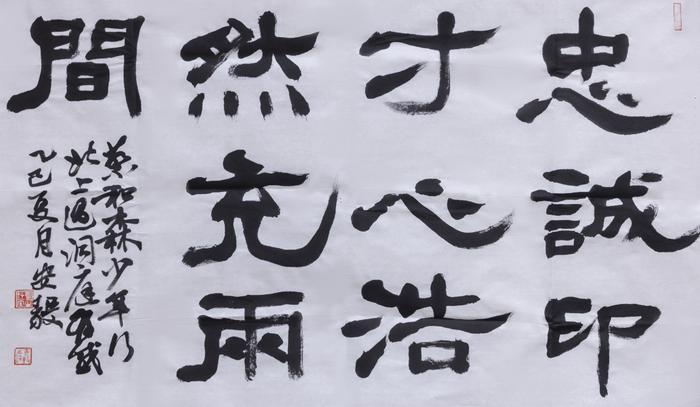 忠誠印
寸心浩
然充兩
間
蔡和森少年行
北上過洞庭有感
乙巳夏月安毅